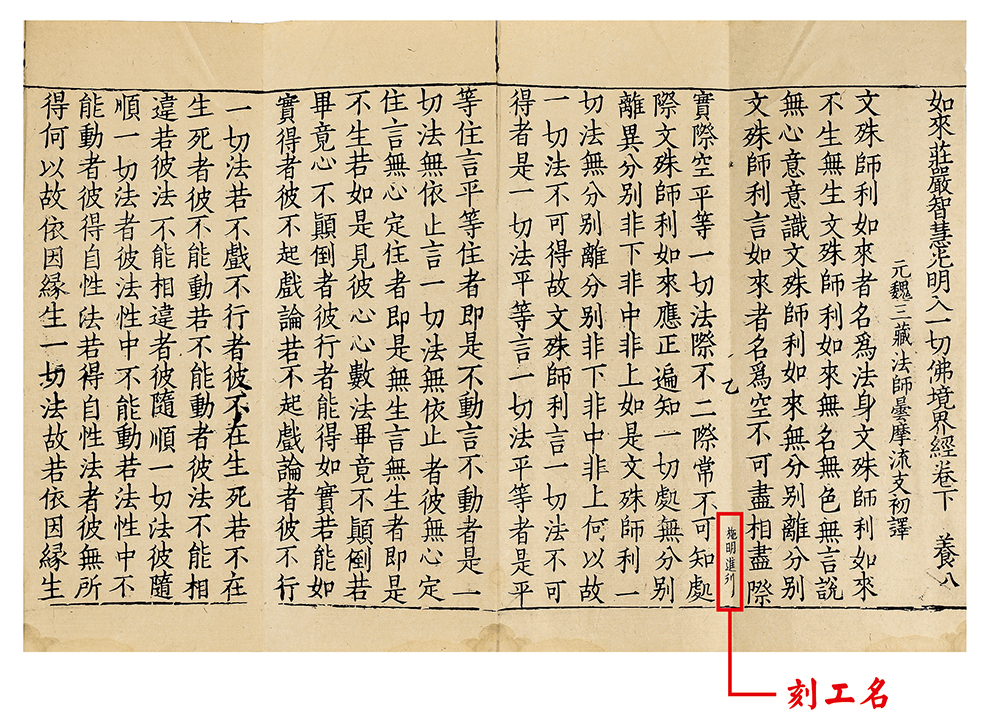 如來莊嚴智慧光明入一切佛境界經卷下 養八
元魏三藏法師曇摩流支初譯
文殊師利如來者名爲法身文殊師利如來
不生無生文殊師利如來無名無色無言說
無心意意識文殊師利如來無分別離分別
文殊師利言如來者名爲空不可盡相盡際
乙
明進刊
實際空平等一切法際不二際常不可知處
際文殊師利如來應正遍知一切處無分別
離異分別非下非中非上如是文殊師利一
切法無分別離分別非下非中非上何以故
一切法不可得故文殊師利言一切法不可
得者是一切法平等言一切法平等者是平
等住言平等住者即是不動言不動者是一
切法無依止言一切法無依止者彼無心定
住言無心定住者即是無生言無生者即是
不生若如是見彼心心數法畢竟不顛倒若
畢竟心不顛倒者彼行者能得如實若能如
實得者彼不起戲論若不起戲論者彼不行
一切法若不戲不行者彼不在生死若不在
生死者彼不能動若不能動者彼法不能相
違若彼法不能相違者彼隨順一切法彼隨
順一切法者彼法性中不能動若法性中不
能動者彼得自性法若得自性法者彼無所
得何以故依因縁生一切法故若依因縁生
刻工名